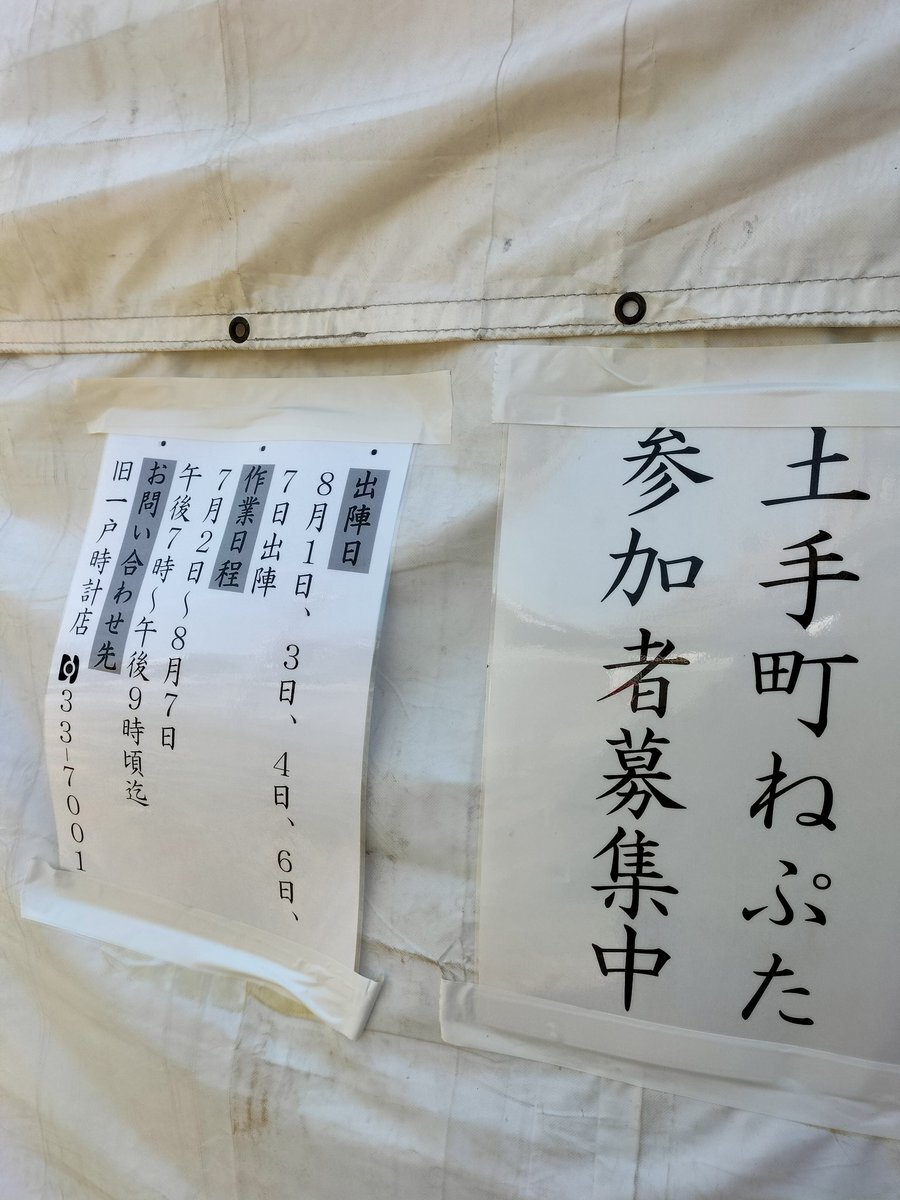 土手町ねぷた
参加者募集中
・出陣日
８月１日、３日、４日、６日、
７日出陣
・作業日程
７月２日～８月７日
午後７時～午後９時頃迄
・お問い合わせ先
旧一戸時計店 ☎３３-７００１